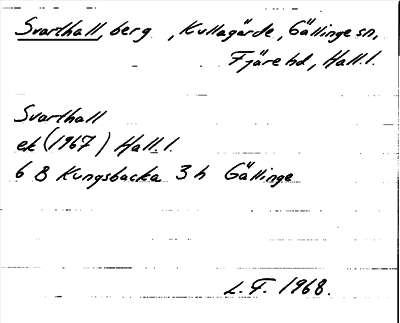 Svarthall, berg , Kullagärde, Gällinge sn,
Fjäre hd, Hall. l.
Svarthall
ek (1967) Hall. l.
6 B Kungsbacka 3 h Gällinge
L. F. 1968.